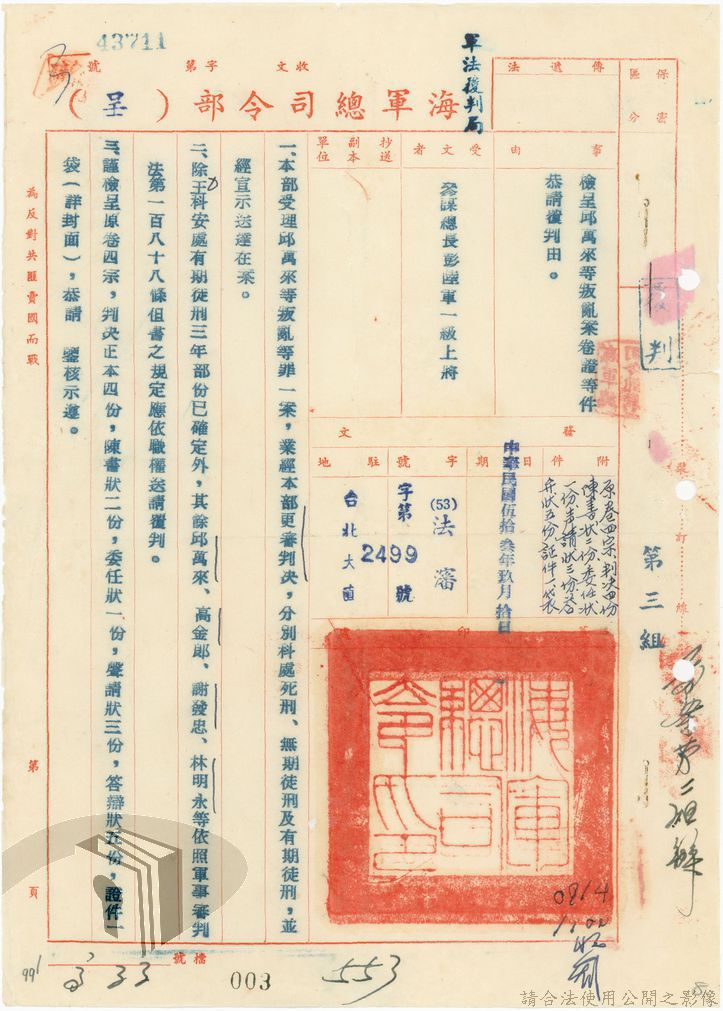 43711
收文 字第 號
海軍總司令部（呈）
軍法覆判局
保密區分
傳遞法
事由
檢呈邱萬來等叛亂案卷證等件
恭請覆判由。
受文者
參謀總長彭陸軍一級上將
抄送副本單位
覆判
發文
附件
原卷四宗判決四份
陳書狀二份委任狀
一份聲請狀三份答
辯狀五份証件一袋
日期
中華民國伍拾叁年玖月拾日
字號
(53)法審
字第2499號
駐地
台北大直
印
海軍總司令印
一、本部受理邱萬來等叛亂等罪一案，業經本部更審判決，分別科處死刑、無期徒刑及有期徒刑，並
經宣示送達在案。
二、除王科安處有期徒刑三年部份已確定外，其餘邱萬來、高金郎、謝發忠、林明永等依照軍事審判
法第一百八十八條但書之規定應依職權送請覆判。
三、謹檢呈原卷四宗，判決正本四份，陳書狀二份，委任狀一份，聲請狀三份，答辯狀五份，證件一
袋（詳封面），恭請 鑒核示遵。
為反對共匪賣國而戰
第 頁
裝訂線
第三組
0814
檔號
003
553
991
33
請合法使用公開之影像